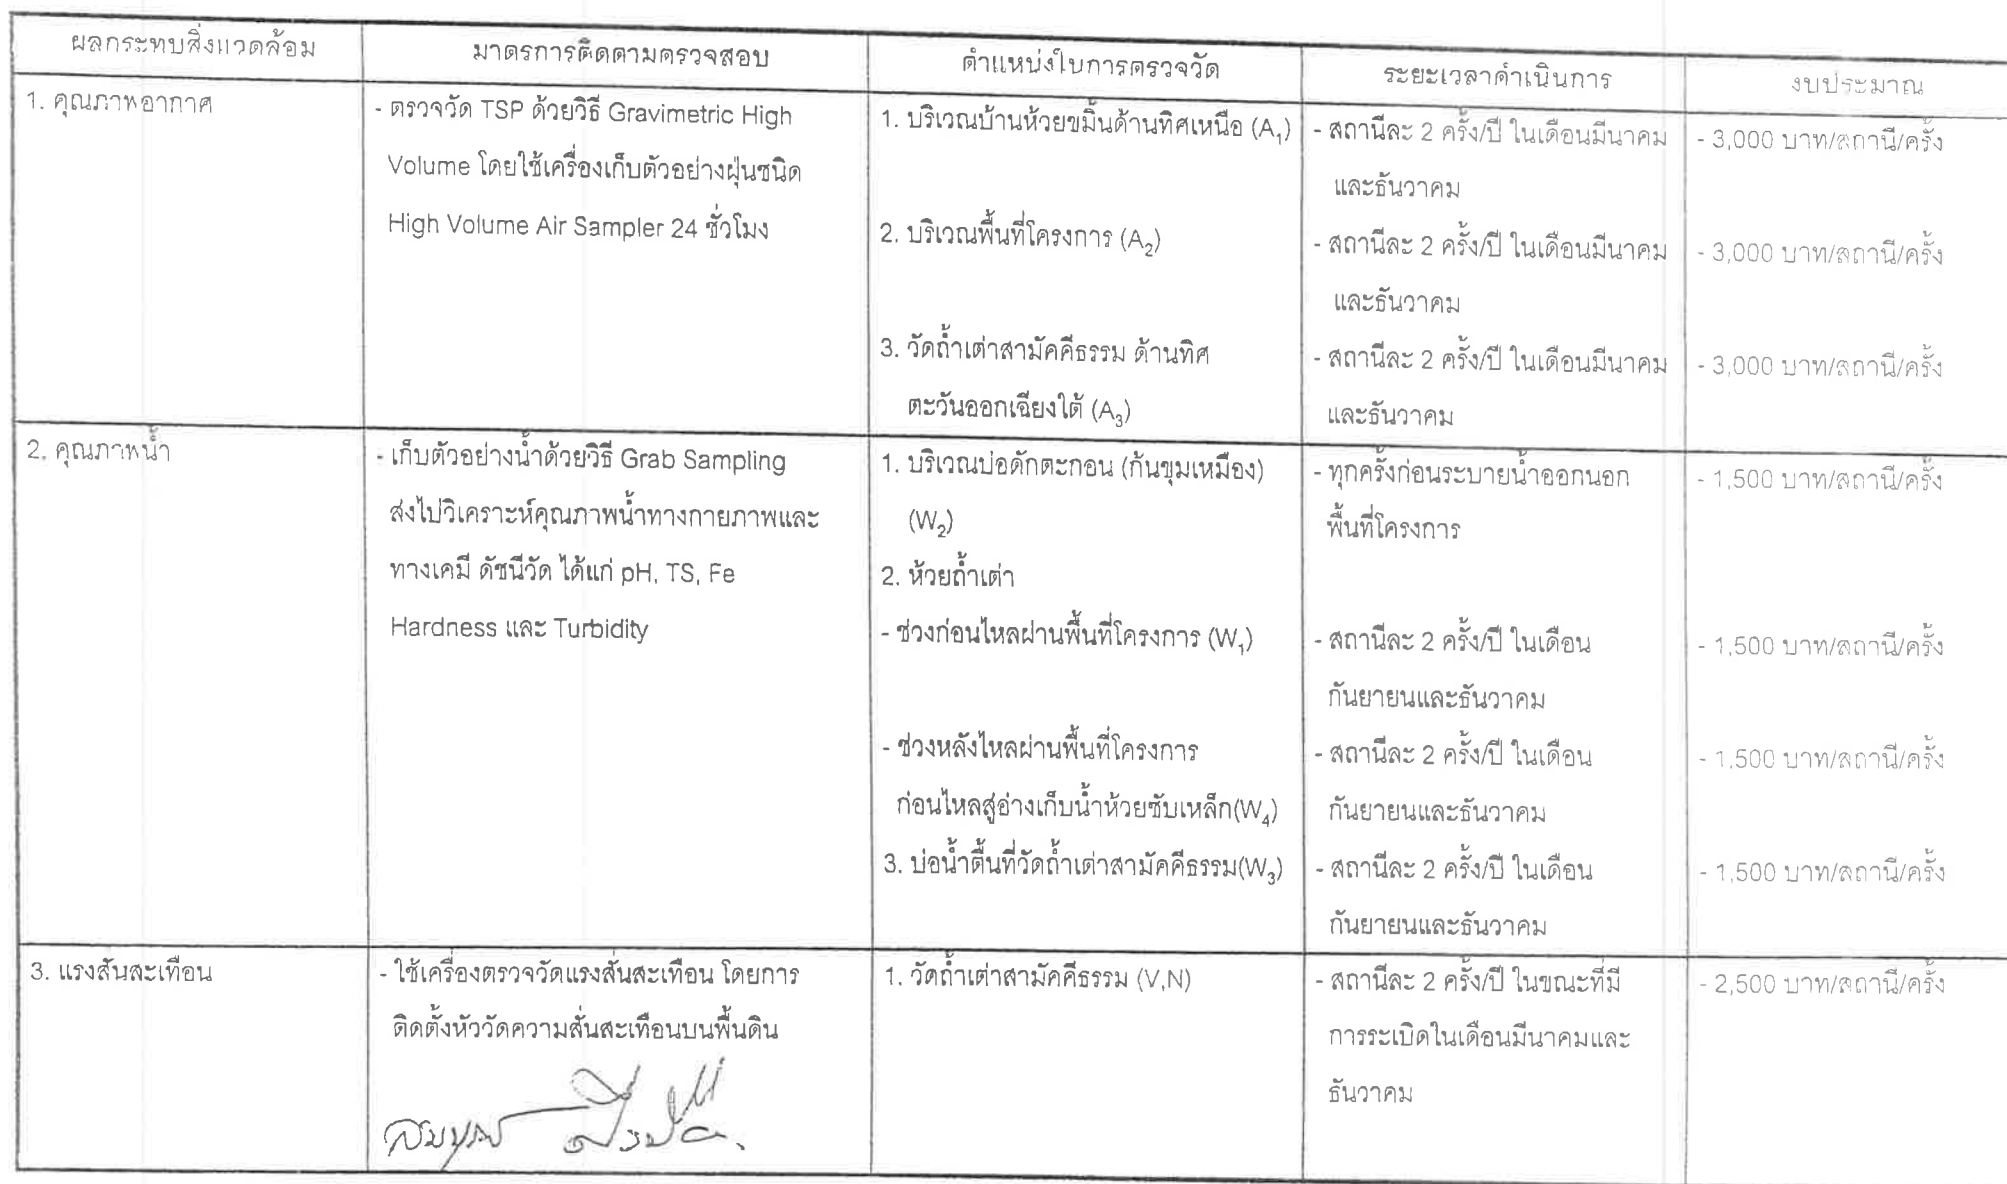 ผลกระทบสิ่งแวดล้อม
มาตรการติดตามตรวจสอบ
ตำแหน่งในการตรวจวัด
ระยะเวลาดำเนินการ
งบประมาณ
1. คุณภาพอากาศ
- ตรวจวัด TSP ด้วยวิธี Gravimetric High
Volume โดยใช้เครื่องเก็บตัวอย่างฝุ่นชนิด
High Volume Air Sampler 24 ชั่วโมง
1. บริเวณบ้านห้วยขมิ้นด้านทิศเหนือ (A₁)
- สถานีละ 2 ครั้ง/ปี ในเดือนมีนาคม
และธันวาคม
- 3,000 บาท/สถานี/ครั้ง
2. บริเวณพื้นที่โครงการ (A₂)
- สถานีละ 2 ครั้ง/ปี ในเดือนมีนาคม
และธันวาคม
- 3,000 บาท/สถานี/ครั้ง
3. วัดถ้ำเต่าสามัคคีธรรม ด้านทิศ
ตะวันออกเฉียงใต้ (A₃)
- สถานีละ 2 ครั้ง/ปี ในเดือนมีนาคม
และธันวาคม
- 3,000 บาท/สถานี/ครั้ง
2. คุณภาพน้ำ
- เก็บตัวอย่างน้ำด้วยวิธี Grab Sampling
ส่งไปวิเคราะห์คุณภาพน้ำทางกายภาพและ
ทางเคมี ดัชนีวัด ได้แก่ pH, TS, Fe
Hardness และ Turbidity
1. บริเวณบ่อดักตะกอน (ก้นขุมเหมือง)
(W₂)
- ทุกครั้งก่อนระบายน้ำออกนอก
พื้นที่โครงการ
- 1,500 บาท/สถานี/ครั้ง
2. ห้วยถ้ำเต่า
- ช่วงก่อนไหลผ่านพื้นที่โครงการ (W₁)
- สถานีละ 2 ครั้ง/ปี ในเดือน
กันยายนและธันวาคม
- 1,500 บาท/สถานี/ครั้ง
- ช่วงหลังไหลผ่านพื้นที่โครงการ
ก่อนไหลสู่อ่างเก็บน้ำห้วยซับเหล็ก(W₄)
- สถานีละ 2 ครั้ง/ปี ในเดือน
กันยายนและธันวาคม
- 1,500 บาท/สถานี/ครั้ง
3. บ่อน้ำตื้นที่วัดถ้ำเต่าสามัคคีธรรม(W₃)
- สถานีละ 2 ครั้ง/ปี ในเดือน
กันยายนและธันวาคม
- 1,500 บาท/สถานี/ครั้ง
3. แรงสั่นสะเทือน
- ใช้เครื่องตรวจวัดแรงสั่นสะเทือน โดยการ
ติดตั้งหัววัดความสั่นสะเทือนบนพื้นดิน
1. วัดถ้ำเต่าสามัคคีธรรม (V,N)
- สถานีละ 2 ครั้ง/ปี ในขณะที่มี
การระเบิดในเดือนมีนาคมและ
ธันวาคม
- 2,500 บาท/สถานี/ครั้ง